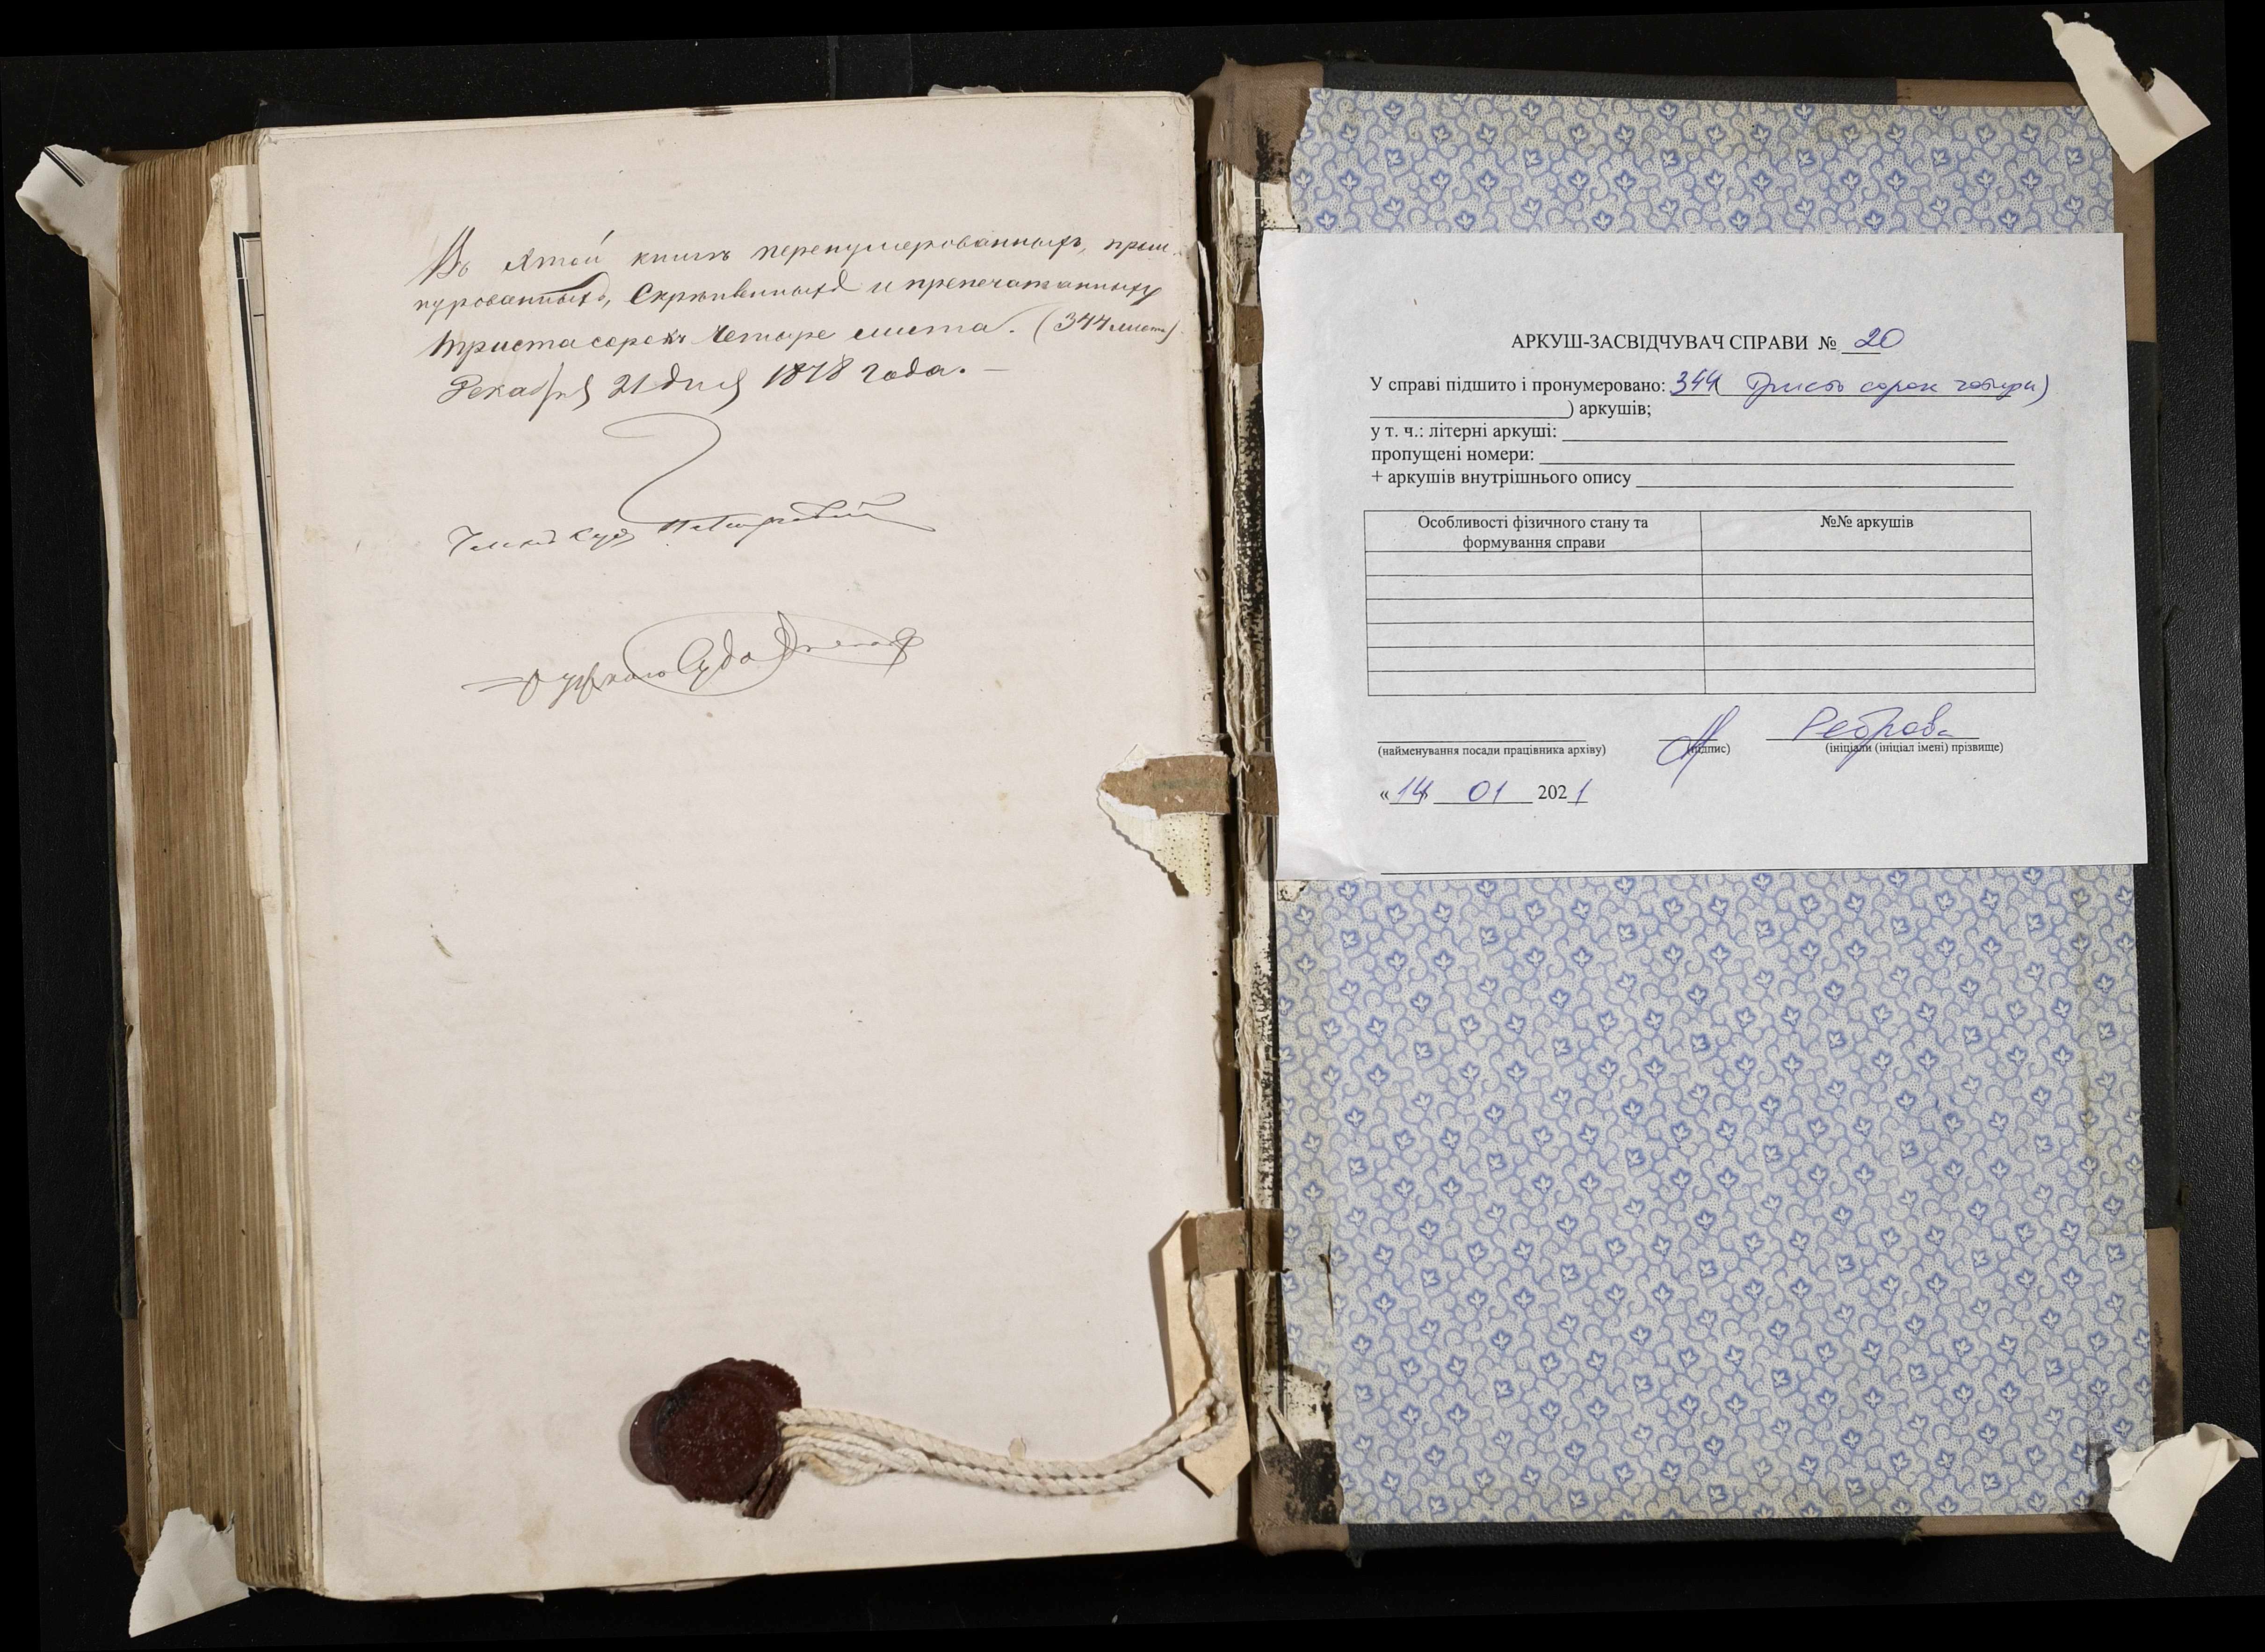 Въ этой книгѣ перенумерованныхъ, прош-
нурованныхъ, скрѣпленныхъ и препечатанныхъ
триста сорокъ четыре листа. (344 листа)
Декабря 21 дня 1878 года. —
Членъ Суда
Суда
АРКУШ-ЗАСВІДЧУВАЧ СПРАВИ № 20
У справі підшито і пронумеровано: 344 (триста сорок чотири)
____________________) аркушів;
у т. ч.: літерні аркуші:
пропущені номери:
+ аркушів внутрішнього опису
Особливості фізичного стану та
формування справи
№№ аркушів
Реброва
(найменування посади працівника архіву) (підпис) (ініціали (ініціал імені) прізвище)
«14» 01 2021